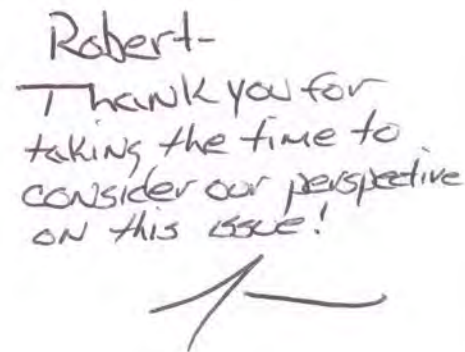 Robert-
Thank you for
taking the time to
consider our perspective
on this issue!